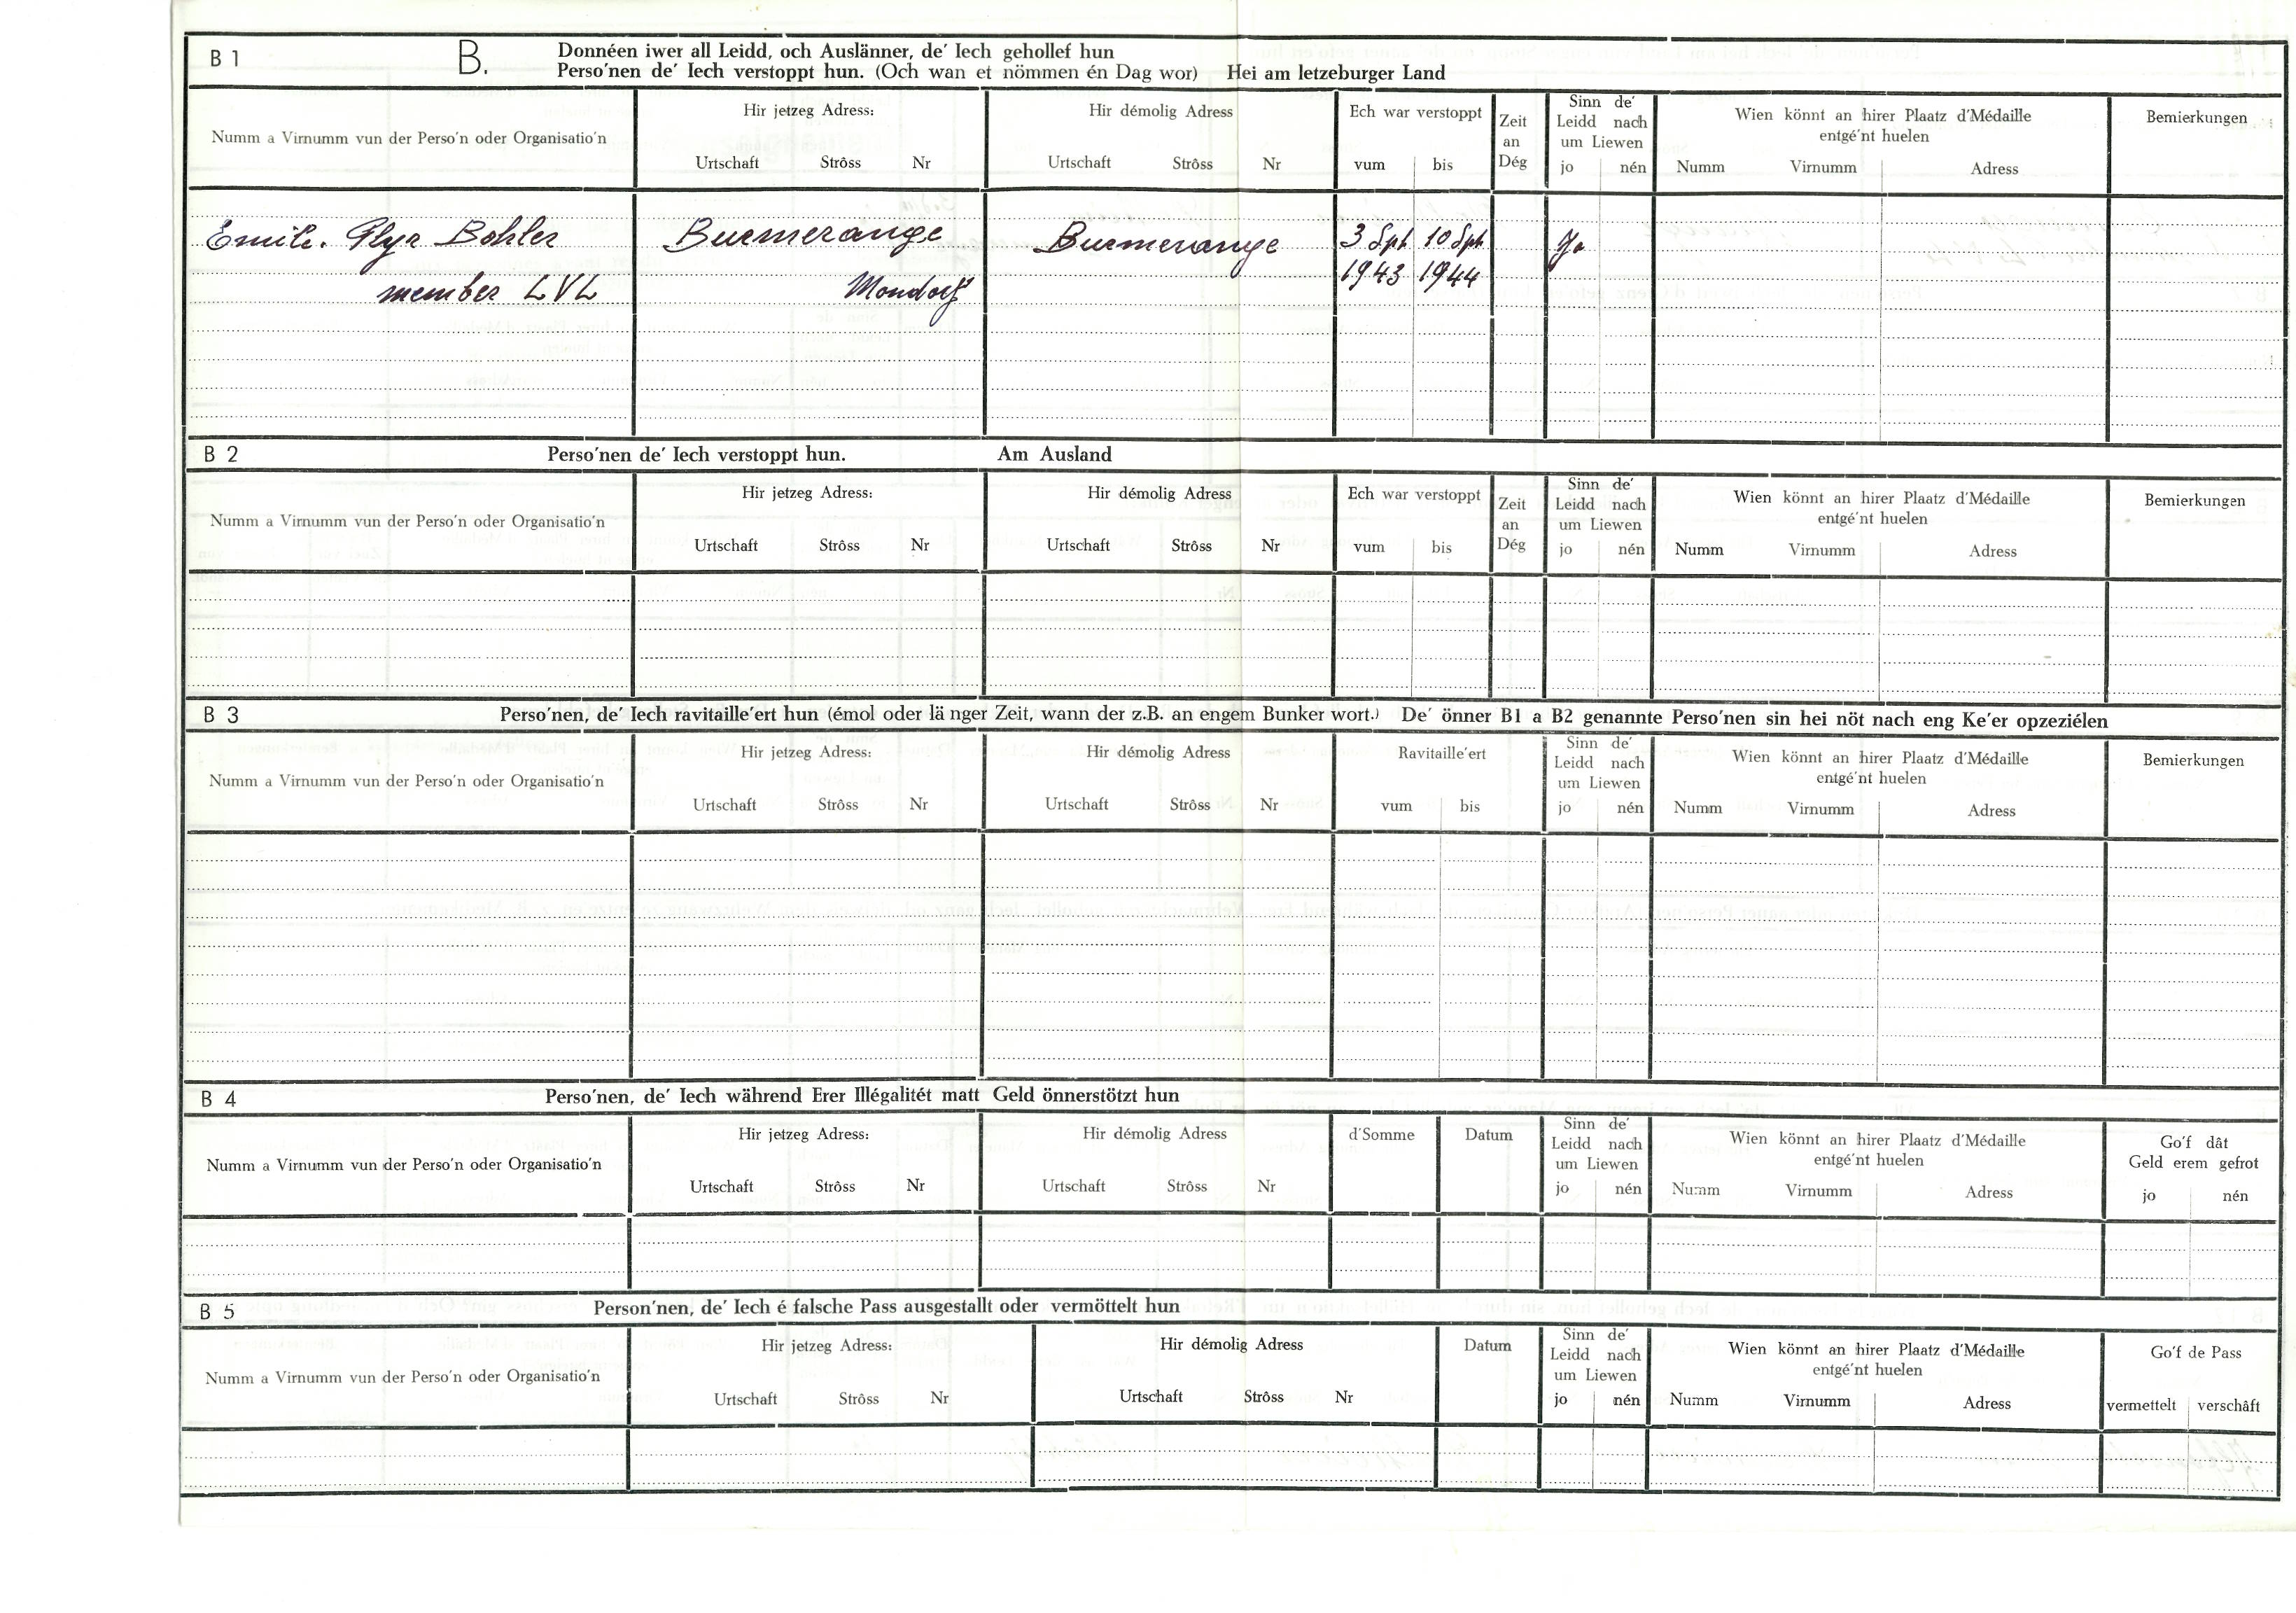 B 1
B.
Donnéen iwer all Leidd, och Auslänner, de' Iech gehollef hun
Perso'nen de' Iech verstoppt hun. (Och wan et nömmen én Dag wor) Hei am letzeburger Land
Numm a Virnumm vun der Perso'n oder Organisatio'n
Hir jetzeg Adress:
Urtschaft Strôss Nr
Hir démolig Adress
Urtschaft Strôss Nr
Ech war verstoppt
vum bis
Zeit
an
Dég
Sinn de'
Leidd nach
um Liewen
jo nén
Wien könnt an hirer Plaatz d'Médaille
entgé'nt huelen
Numm Virnumm Adress
Bemierkungen
Emile. Bohler Burmerange Burmerange 3 Spt 10 Spt Ja
member LVL Mondorf 1943 1944
B 2
Perso'nen de' Iech verstoppt hun. Am Ausland
Numm a Virnumm vun der Perso'n oder Organisatio'n
Hir jetzeg Adress:
Urtschaft Strôss Nr
Hir démolig Adress
Urtschaft Strôss Nr
Ech war verstoppt
vum bis
Zeit
an
Dég
Sinn de'
Leidd nach
um Liewen
jo nén
Wien könnt an hirer Plaatz d'Médaille
entgé'nt huelen
Numm Virnumm Adress
Bemierkungen
B 3
Perso'nen, de' Iech ravitaille'ert hun (émol oder lä nger Zeit, wann der z.B. an engem Bunker wort.) De' önner B1 a B2 genannte Perso'nen sin hei nöt nach eng Ke'er opzeziélen
Numm a Virnumm vun der Perso'n oder Organisatio'n
Hir jetzeg Adress:
Urtschaft Strôss Nr
Hir démolig Adress
Urtschaft Strôss Nr
Ravitaille'ert
vum bis
Sinn de'
Leidd nach
um Liewen
jo nén
Wien könnt an hirer Plaatz d'Médaille
entgé'nt huelen
Numm Virnumm Adress
Bemierkungen
B 4
Perso'nen, de' Iech während Erer Illégalitét matt Geld önnerstötzt hun
Numm a Virnumm vun der Perso'n oder Organisatio'n
Hir jetzeg Adress:
Urtschaft Strôss Nr
Hir démolig Adress
Urtschaft Strôss Nr
d'Somme
Datum
Sinn de'
Leidd nach
um Liewen
jo nén
Wien könnt an hirer Plaatz d'Médaille
entgé'nt huelen
Numm Virnumm Adress
Go'f dât
Geld erem gefrot
jo nén
B 5
Person'nen, de' Iech é falsche Pass ausgestallt oder vermöttelt hun
Numm a Virnumm vun der Perso'n oder Organisatio'n
Hir jetzeg Adress:
Urtschaft Strôss Nr
Hir démolig Adress
Urtschaft Strôss Nr
Datum
Sinn de'
Leidd nach
um Liewen
jo nén
Wien könnt an hirer Plaatz d'Médaille
entgé'nt huelen
Numm Virnumm Adress
Go'f de Pass
vermettelt verschâft